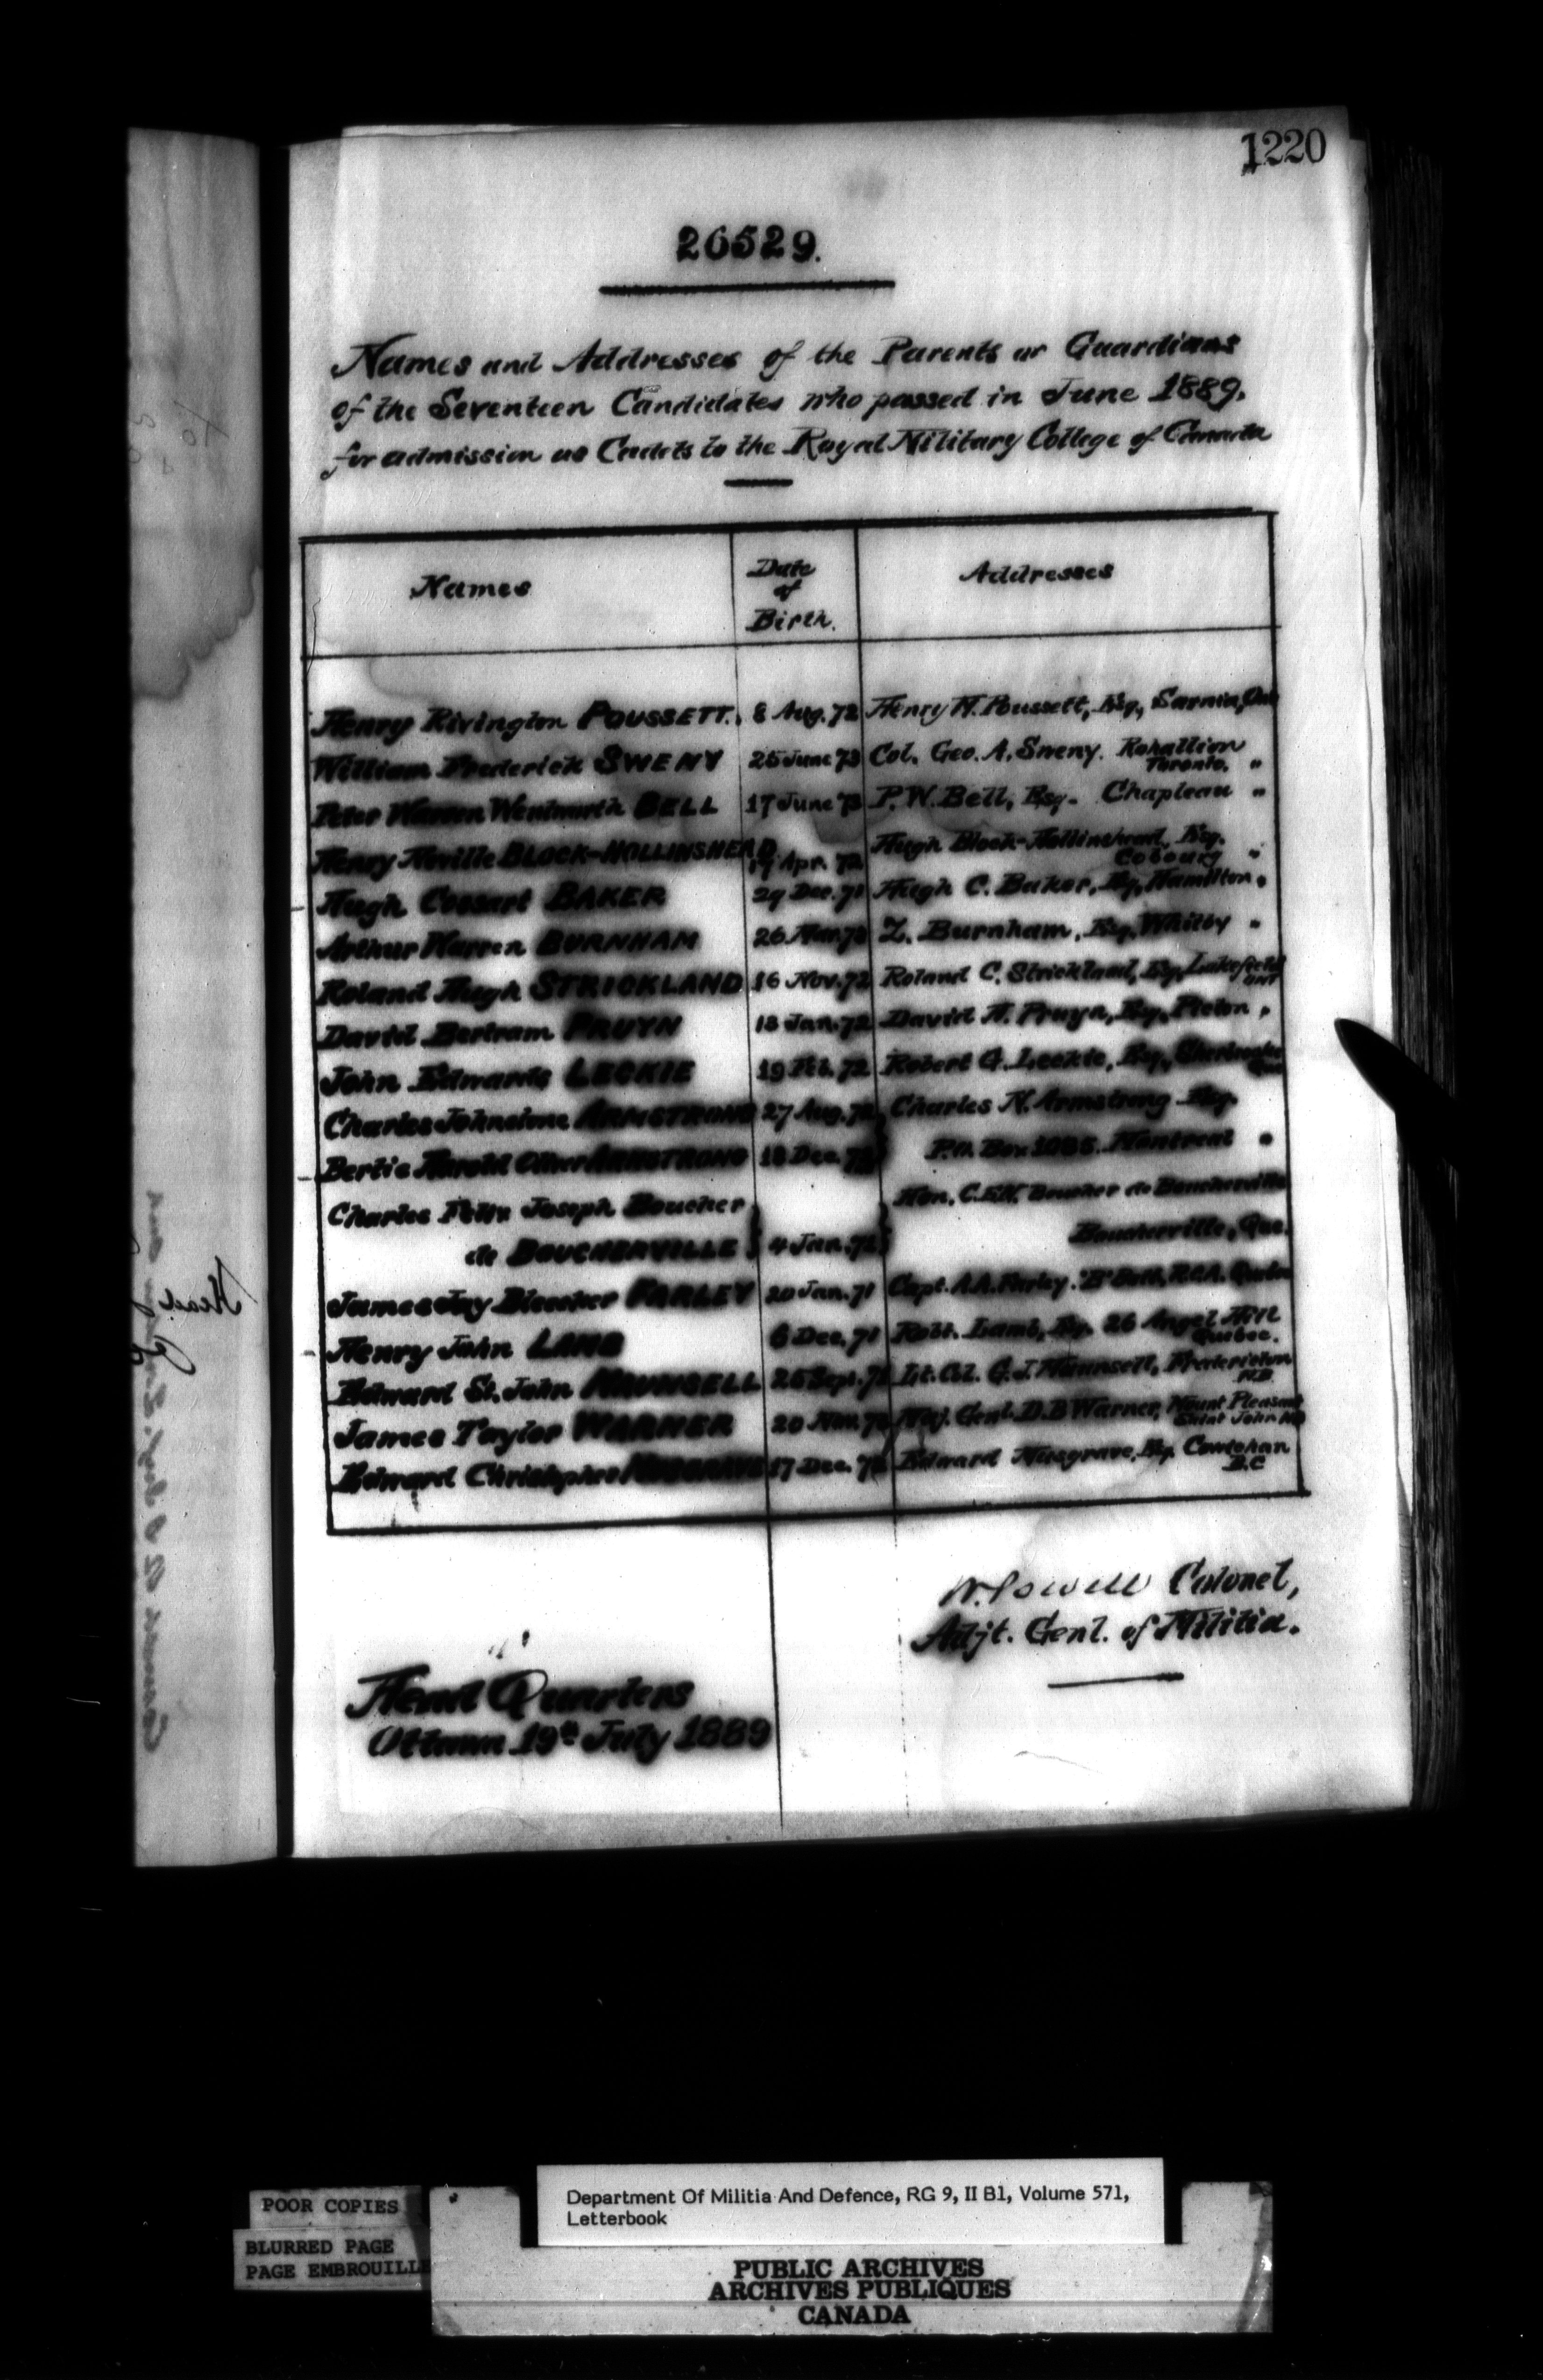 1220
26529.
Names and Addresses of the Parents or Guardians
of the Seventeen Candidates who passed in June 1889,
for admission as Cadets to the Royal Military College of Canada
Names Date of Birth. Addresses
Henry Rivington POUSSETT. 8 Aug. 72 Henry H. Poussett, Esq, Sarnia, Ont
William Frederick SWENY 25 June 73 Col. Geo. A. Sweny. Rohallion Toronto. "
Peter Warren Wentworth BELL 17 June 73 P. W. Bell, Esq. Chapleau "
Henry Neville BLOCK-HOLLINSHEAD 19 Apr. 72 Hugh Block-Hollinshead, Esq. Cobourg "
Hugh Cossart BAKER 29 Dec. 71 Hugh C. Baker, Esq, Hamilton "
Arthur Warren BURNHAM 26 Mar. 73 Z. Burnham, Esq, Whitby "
Roland Hugh STRICKLAND 16 Nov. 72 Roland C. Strickland, Esq, Lakefield ONT
David Bertram PRUYN 18 Jan. 72 David A. Pruyn, Esq, Picton "
John Edwards LECKIE 19 Feb. 72 Robert G. Leckie, Esq, Sherbrooke Que
Charles Johnstone ARMSTRONG 27 Aug. 72 Charles N. Armstrong Esq.
Bertie Harold Oliver ARMSTRONG 18 Dec. 73 P.O. Box 1085. Montreal "
Charles Joseph Boucher Hon. C.E.B. Boucher de Boucherville
de BOUCHERVILLE 4 Jan. 72 Boucherville, Que.
James Jay Bleecker FARLEY 20 Jan. 71 Capt. A.A. Farley. "B" Batt, R.C.A. Quebec
Henry John LAMB 6 Dec. 71 Robt. Lamb, Esq. 26 Angel Hill Quebec.
Edward St. John MAUNSELL 25 Sept. Lt. Col. G. J. Maunsell, Fredericton N.B.
James Taylor WARNER 20 Maj. Genl. D. B Warner, Mount Pleasant Saint John NB
Edward Christopher MUSGRAVE 17 Dec. Edward Musgrave, Esq. Cowichan B.C
W. Powell Colonel,
Adjt. Genl. of Militia.
Head Quarters
Ottawa 19th July 1889
POOR COPIES
BLURRED PAGE
PAGE EMBROUILLE
Department Of Militia And Defence, RG 9, II B1, Volume 571,
Letterbook
PUBLIC ARCHIVES
ARCHIVES PUBLIQUES
CANADA